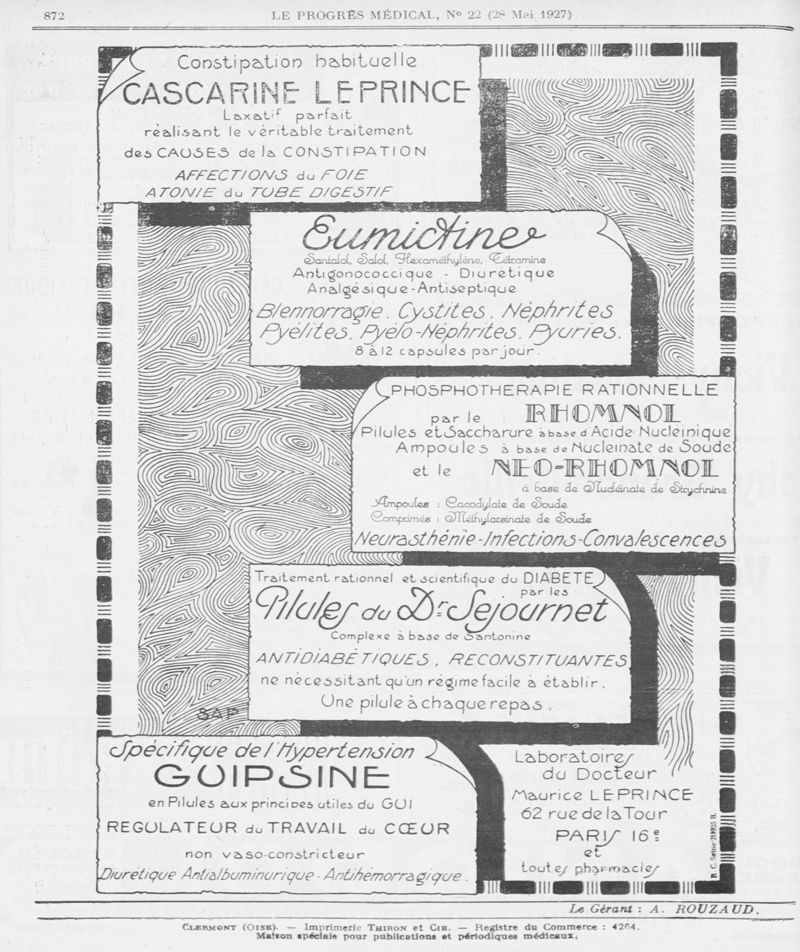 872
LE PROGRÈS MÉDICAL, No 22 (28 Mai 1927)
Constipation habituelle
CASCARINE LEPRINCE
Laxatif parfait
réalisant le véritable traitement
des CAUSES de la CONSTIPATION
AFFECTIONS du FOIE
ATONIE du TUBE DIGESTIF
Eumictine
Santalol, Salol, Hexaméthylène, Tétramine
Antigonococcique - Diuretique
Analgésique-Antiseptique
Blennorragie, Cystites, Néphrites
Pyélites, Pyélo-Néphrites, Pyuries.
8 à 12 capsules par jour.
PHOSPHOTHERAPIE RATIONNELLE
par le RHOMNOL
Pilules et Saccharure à base d'Acide Nucléinique
Ampoules à base de Nucléinate de Soude
et le NEO-RHOMNOL
à base de Nucléinate de Strychnine
Ampoules : Cacodylate de Soude
Comprimés : Méthylarsinate de Soude
Neurasthénie-Infections-Convalescences
Traitement rationnel et scientifique du DIABÈTE
par les
Pilules du Dr Séjournet
Complexe à base de Santonine
ANTIDIABÉTIQUES, RECONSTITUANTES
ne nécessitant qu'un régime facile à établir.
Une pilule à chaque repas.
SAP
Spécifique de l'Hypertension
GUIPSINE
en Pilules aux principes utiles du GUI
REGULATEUR du TRAVAIL du CŒUR
non vaso-constricteur
Diurétique Antialbuminurique - Antihémorragique.
Laboratoires
du Docteur
Maurice LEPRINCE
62 rue de la Tour
PARIS 16e
et
toutes pharmacies
Le Gérant : A. ROUZAUD.
CLERMONT (OISE). — Imprimerie THIRON et CIE. — Registre du Commerce : 4264.
Maison spéciale pour publications et périodiques médicaux.